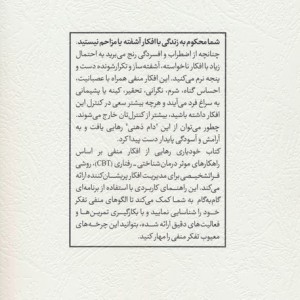 شما محکوم به زندگی با افکار آشفته یا مزاحم نیستید.
چنانچه از اضطراب و افسردگی رنج می‌برید به احتمال
زیاد با افکار ناخواسته، آشفته‌ساز و تکرارشونده دست و
پنجه نرم می‌کنید. این افکار منفی همراه با عصبانیت،
احساس گناه، شرم، نگرانی، تحقیر، کینه یا پشیمانی
به سراغ فرد می‌آیند و هرچه بیشتر سعی در کنترل این
افکار داشته باشید، بیشتر از کنترل‌تان خارج می‌شوند.
چطور می‌توان از این "دام ذهنی" رهایی یافت و به
آرامش و آسودگی پایدار دست پیدا کرد.
کتاب خودیاری رهایی از افکار منفی بر اساس
راهکارهای موثر درمان شناختی ـ رفتاری (CBT)، روشی
فراتشخیصی برای مدیریت افکار پریشان‌کننده ارائه
می‌کند. این راهنمای کاربردی با استفاده از برنامه‌ای
گام‌به‌گام به شما کمک می‌کند تا الگوهای منفی تفکر
خود را شناسایی نمایید و با بکارگیری تمرین‌ها و
فعالیت‌های دقیق ارائه شده، بتوانید این چرخه‌های
معیوب تفکر منفی را مهار کنید.